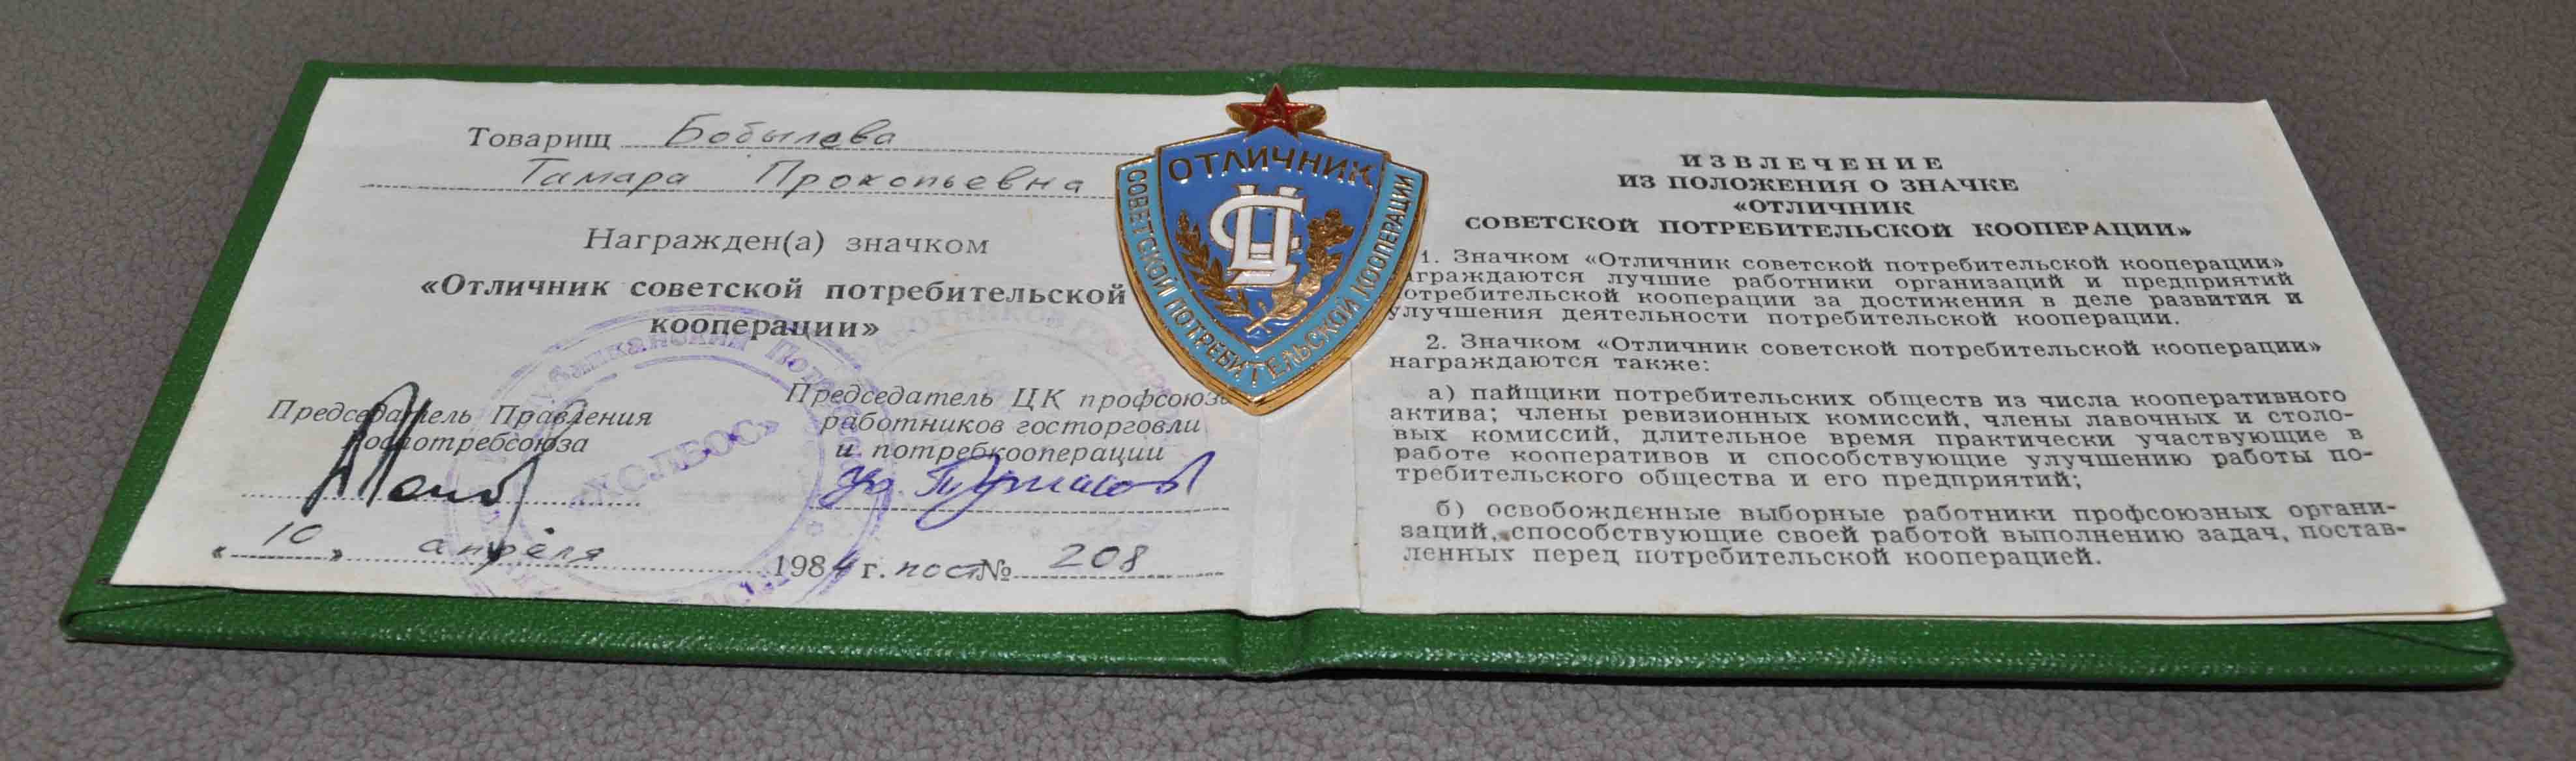 Товарищ Бобылева
Тамара Прокопьевна
Награжден(а) значком
«Отличник советской потребительской
кооперации»
Председатель Правления
Роспотребсоюза
Председатель ЦК профсоюза
работников госторговли
и потребкооперации
«10» апреля 1984 г. пост № 208
«ХОЛБОС»
ОТЛИЧНИК
СОВЕТСКОЙ ПОТРЕБИТЕЛЬСКОЙ КООПЕРАЦИИ
ИЗВЛЕЧЕНИЕ
ИЗ ПОЛОЖЕНИЯ О ЗНАЧКЕ
«ОТЛИЧНИК
СОВЕТСКОЙ ПОТРЕБИТЕЛЬСКОЙ КООПЕРАЦИИ»
1. Значком «Отличник советской потребительской кооперации»
награждаются лучшие работники организаций и предприятий
потребительской кооперации за достижения в деле развития и
улучшения деятельности потребительской кооперации.
2. Значком «Отличник советской потребительской кооперации»
награждаются также:
а) пайщики потребительских обществ из числа кооперативного
актива; члены ревизионных комиссий, члены лавочных и столо-
вых комиссий, длительное время практически участвующие в
работе кооперативов и способствующие улучшению работы по-
требительского общества и его предприятий;
б) освобожденные выборные работники профсоюзных органи-
заций, способствующие своей работой выполнению задач, постав-
ленных перед потребительской кооперацией.